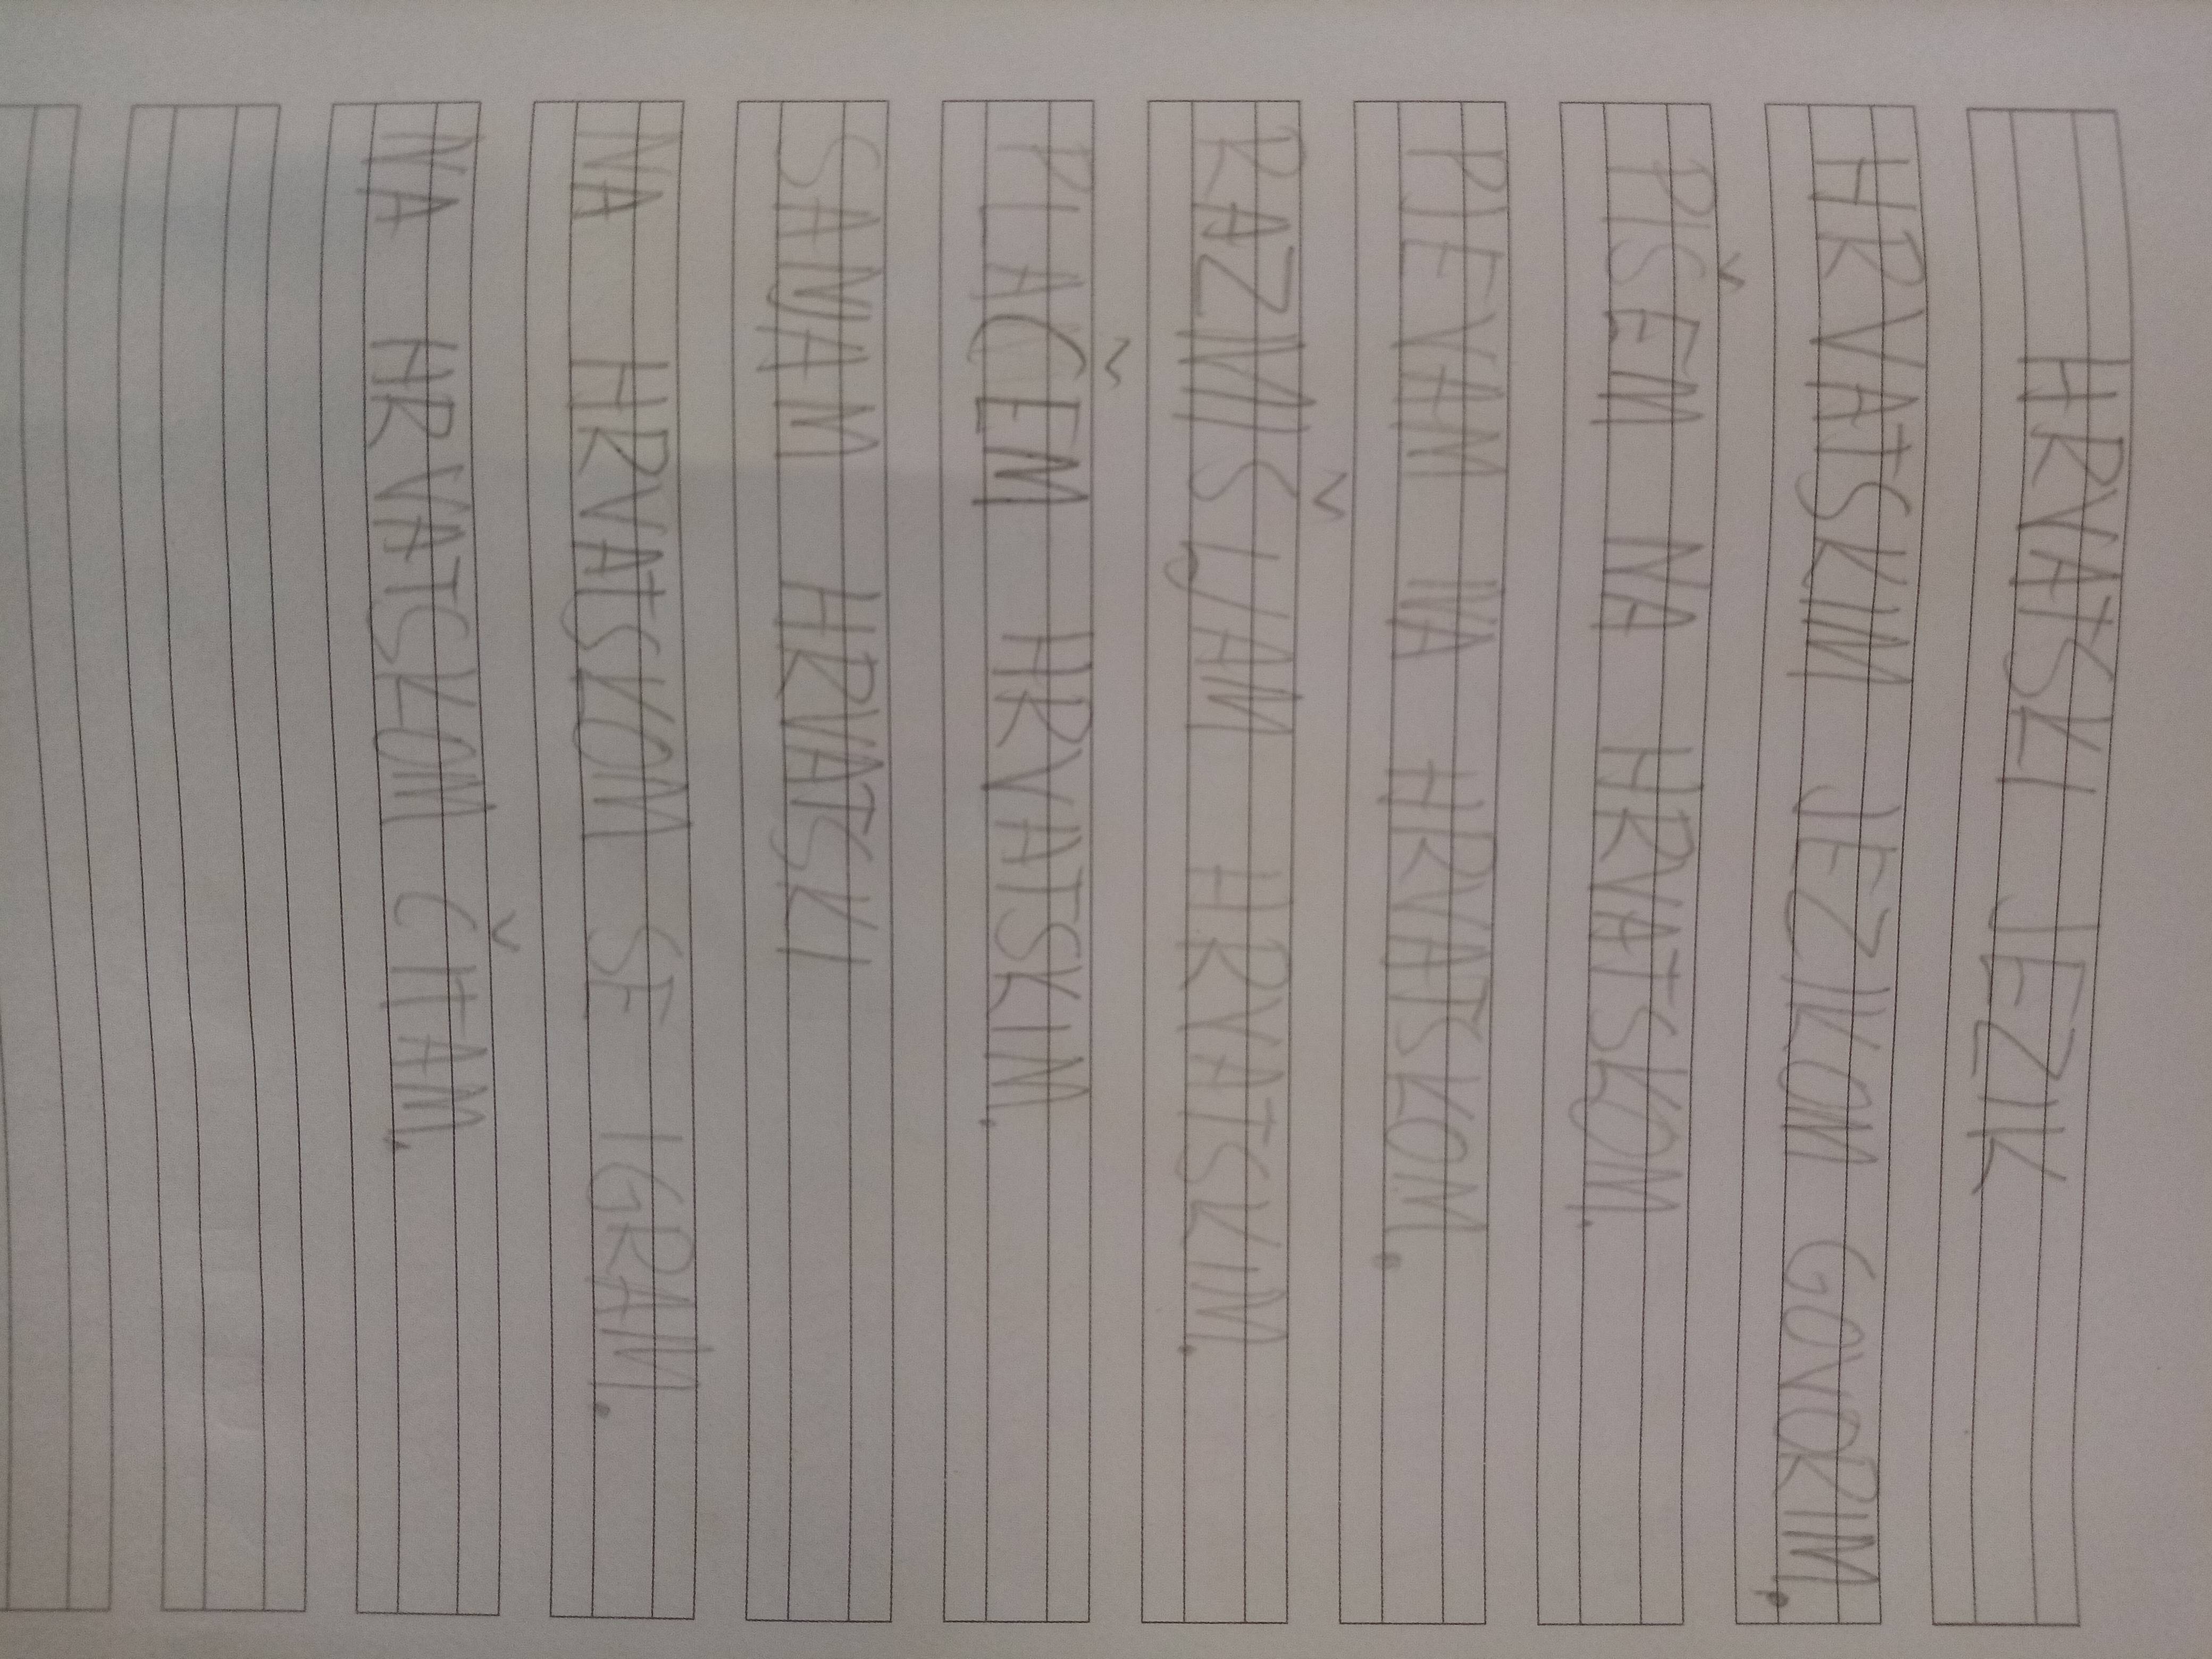 HRVATSKI JEZIK
HRVATSKIM JEZIKOM GOVORIM.
PIŠEM NA HRVATSKOM.
PJEVAM NA HRVATSKOM.
RAZMIŠLJAM HRVATSKIM.
PLAČEM HRVATSKIM.
SANJAM HRVATSKI
NA HRVATSKOM SE IGRAM.
NA HRVATSKOM ČITAM.